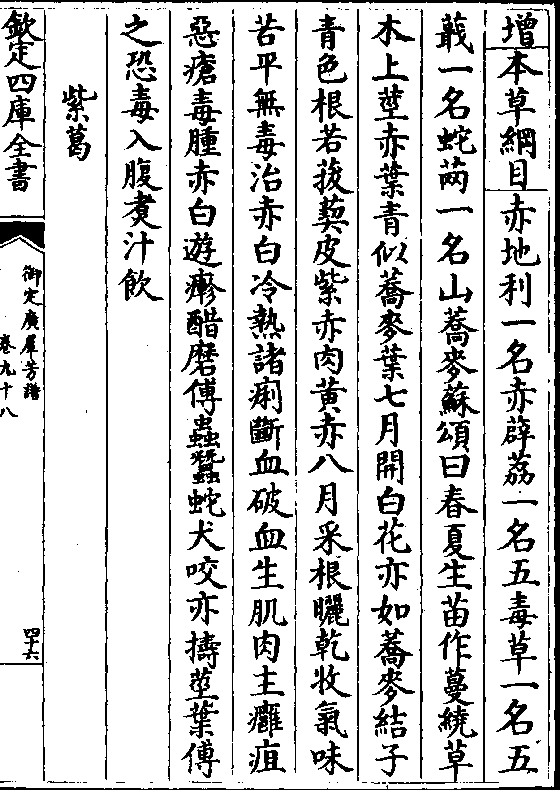 增本草綱目赤地利一名赤薜荔一名五毒草一名五
蕺一名蛇䓟一名山蕎麥蘇頌曰春夏生苗作蔓繞草
木上莖赤葉青似蕎麥葉七月開白花亦如蕎麥結子
青色根若菝葜皮紫赤肉黃赤八月采根曬乾收氣味
苦平無毒治赤白冷熱諸痢斷血破血生肌肉主癰疽
惡瘡毒腫赤白遊瘮醋磨傅蟲蠶蛇犬咬亦擣莖葉傅
之恐毒入腹煑汁飲
紫葛
欽定四庫全書
御定廣羣芳譜
卷九十八
四十六